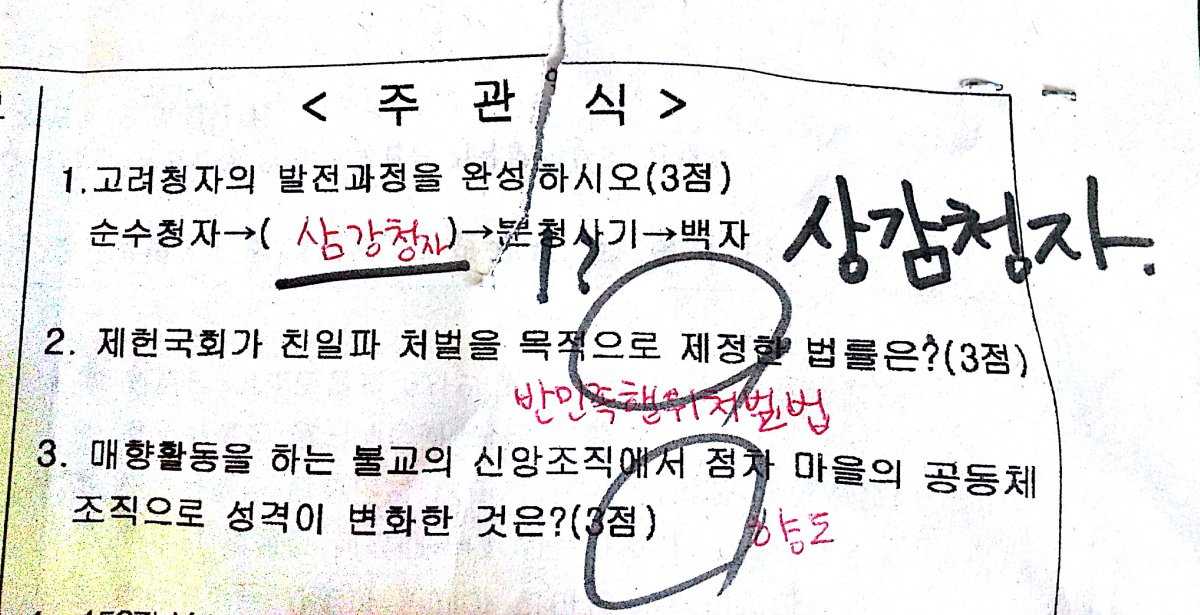 < 주 관 식 >
1.고려청자의 발전과정을 완성하시오(3점)
순수청자→( 삼강청자 )→분청사기→백자
??
상감청자.
2. 제헌국회가 친일파 처벌을 목적으로 제정한 법률은?(3점)
반민족행위처벌법
3. 매향활동을 하는 불교의 신앙조직에서 점차 마을의 공동체
조직으로 성격이 변화한 것은?(3점)
향도